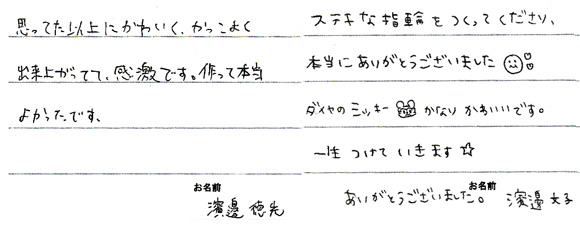 思ってた以上にかわいく、かっこよく
出来上がってて、感激です。作って本当
よかったです、
お名前
濱邊 徳光
ステキな指輪をつくってくださり、
本当にありがとうございました
ダイヤのミッキー かなり かわいいです。
一生 つけて いきます☆
ありがとうございました。
お名前
濱邊